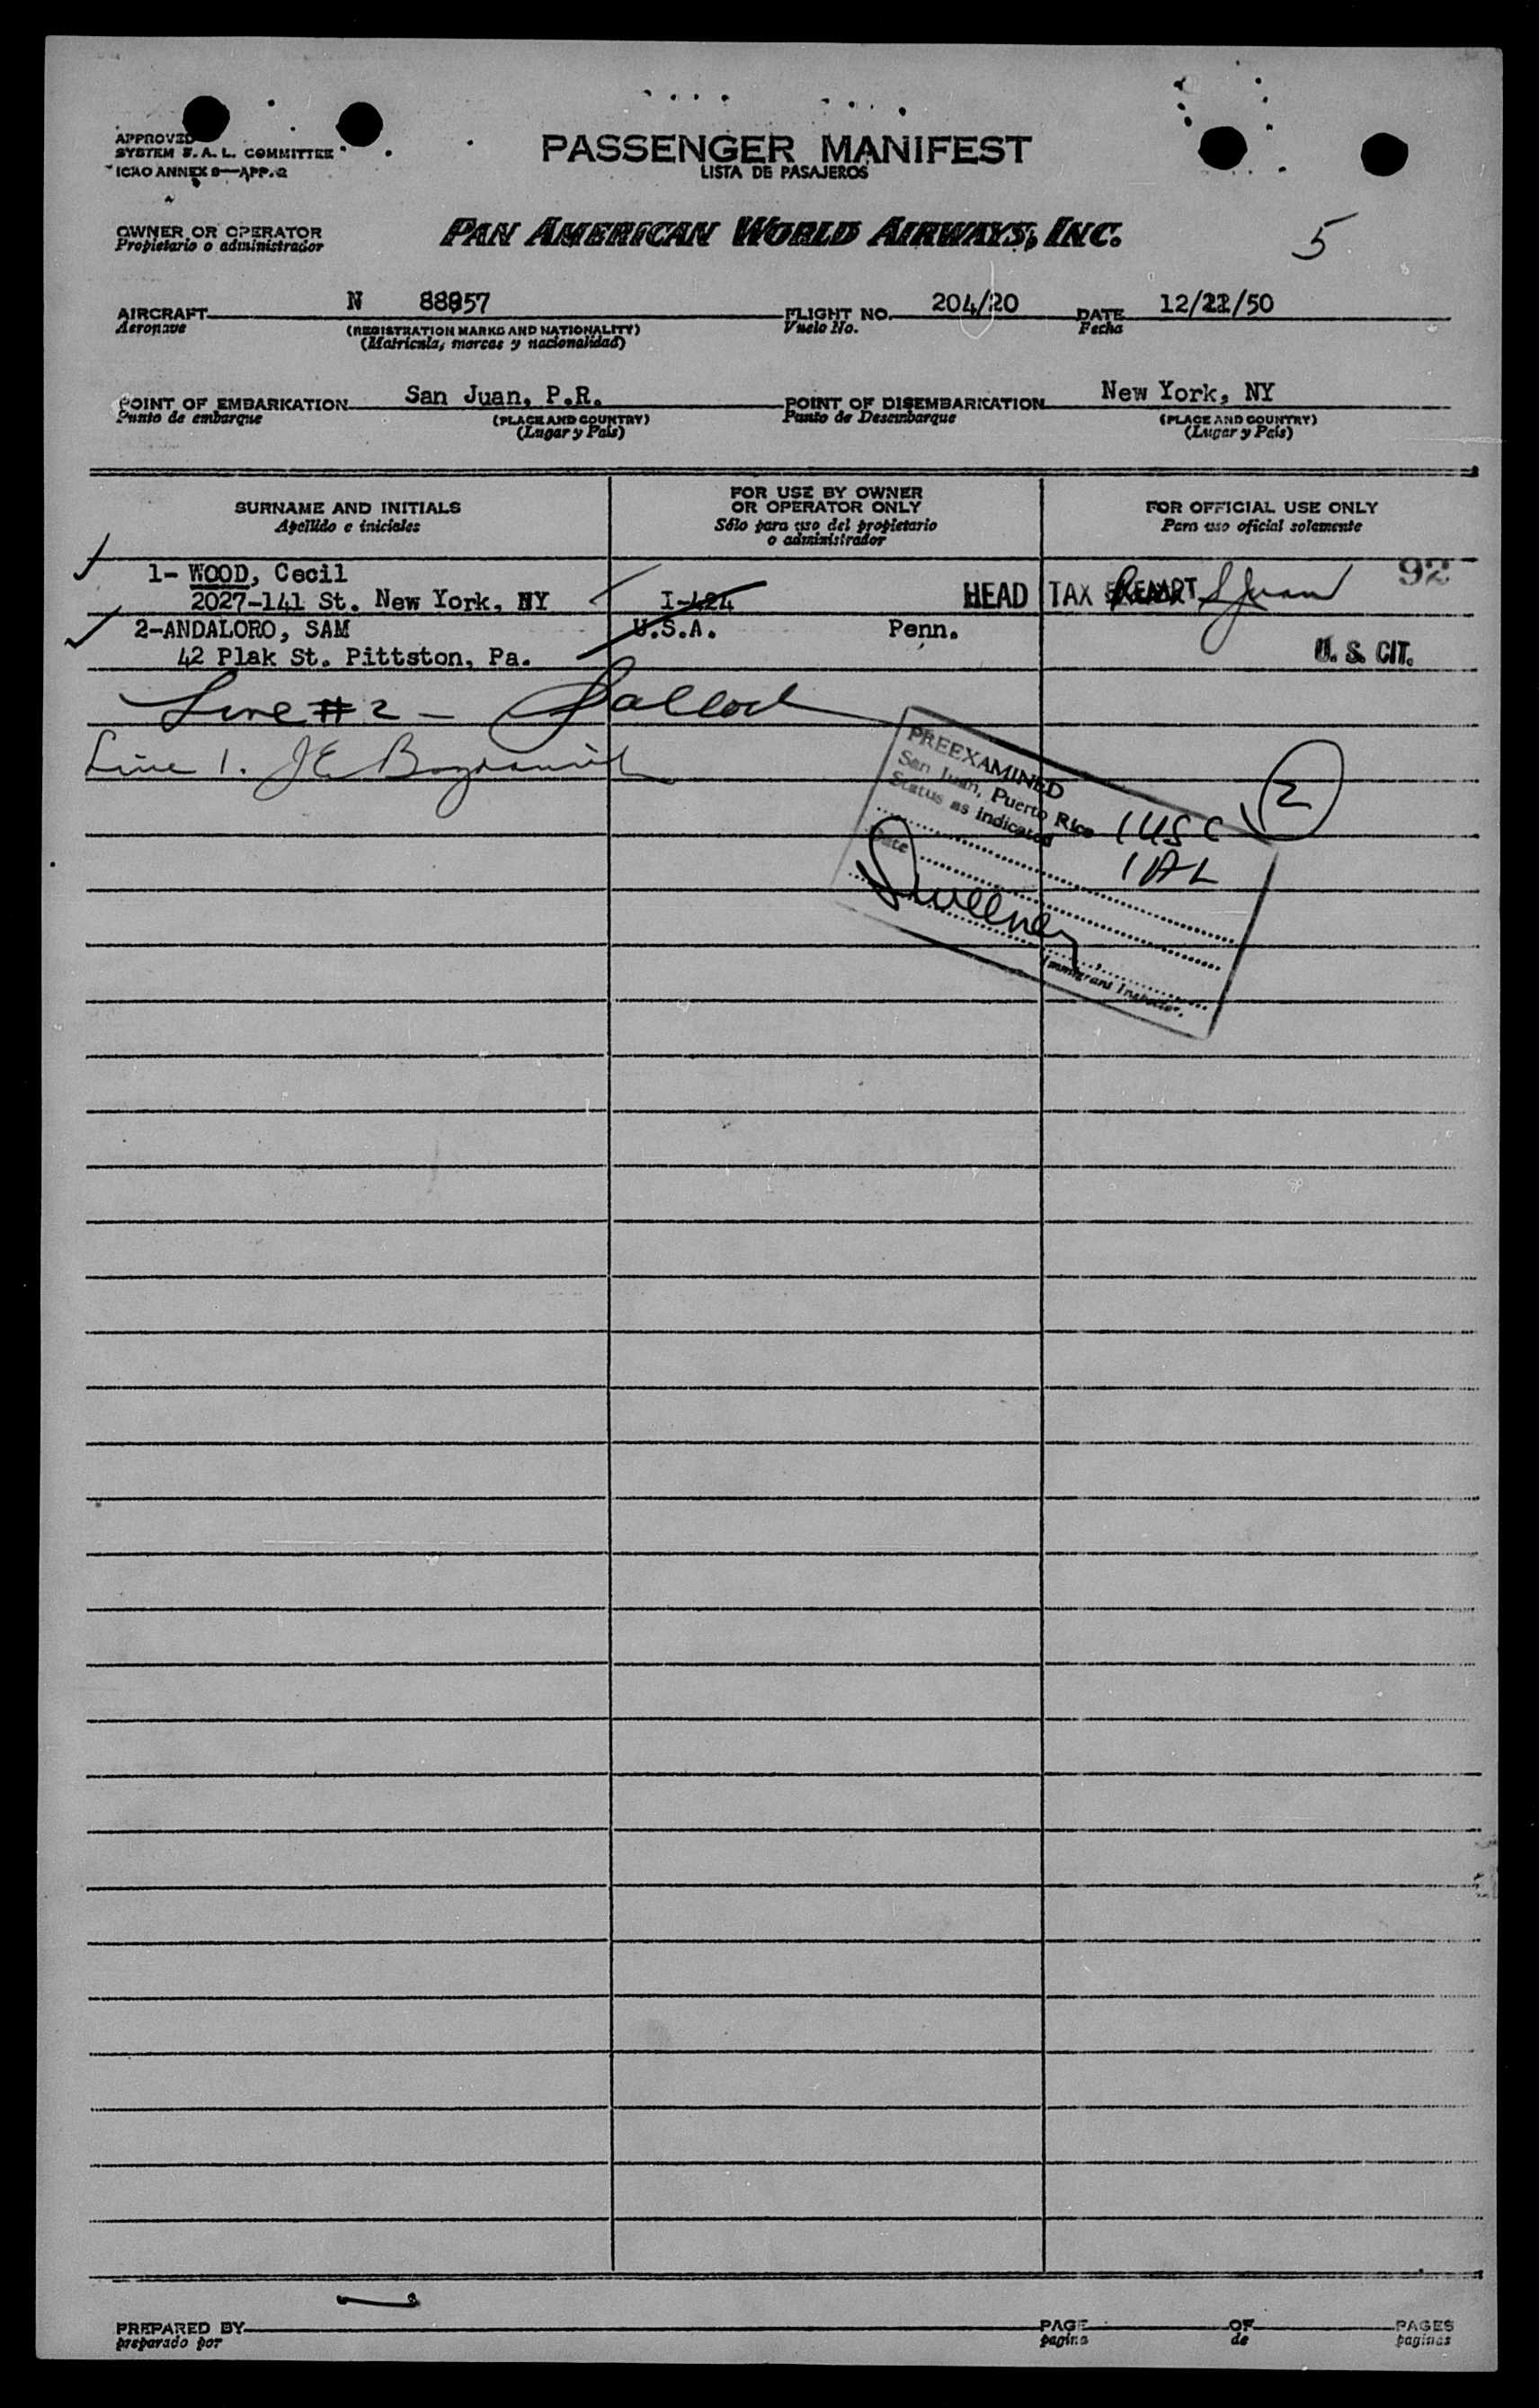 APPROVED
SYSTEM F. A. L. COMMITTEE
ICAO ANNEX 9—APP. 2
PASSENGER MANIFEST
LISTA DE PASAJEROS
OWNER OR OPERATOR
Propietario o administrador
PAN AMERICAN WORLD AIRWAYS, INC.
5
AIRCRAFT N 88957 FLIGHT NO. 204/20 DATE 12/22/50
Aeronave (REGISTRATION MARKS AND NATIONALITY) Vuelo No. Fecha
(Matricula, marcas y nacionalidad)
POINT OF EMBARKATION San Juan, P.R. POINT OF DISEMBARKATION New York, NY
Punto de embarque (PLACE AND COUNTRY) Punto de Desembarque (PLACE AND COUNTRY)
(Lugar y País) (Lugar y País)
SURNAME AND INITIALS
Apellido e iniciales
FOR USE BY OWNER
OR OPERATOR ONLY
Sólo para uso del propietario
o administrador
FOR OFFICIAL USE ONLY
Para uso oficial solamente
92
1- WOOD, Cecil
2027-141 St. New York, NY I-424 HEAD TAX EXEMPT S Juan
2-ANDALORO, SAM U.S.A. Penn.
42 Plak St. Pittston, Pa. U. S. CIT.
Line #2 -
Line 1. JE
PREEXAMINED
San Juan, Puerto Rico
Status as indicated
1 USC
1 AL
2
Date
Sweeney
Immigrant Inspector.
PREPARED BY PAGE OF PAGES
preparado por pagina de paginas